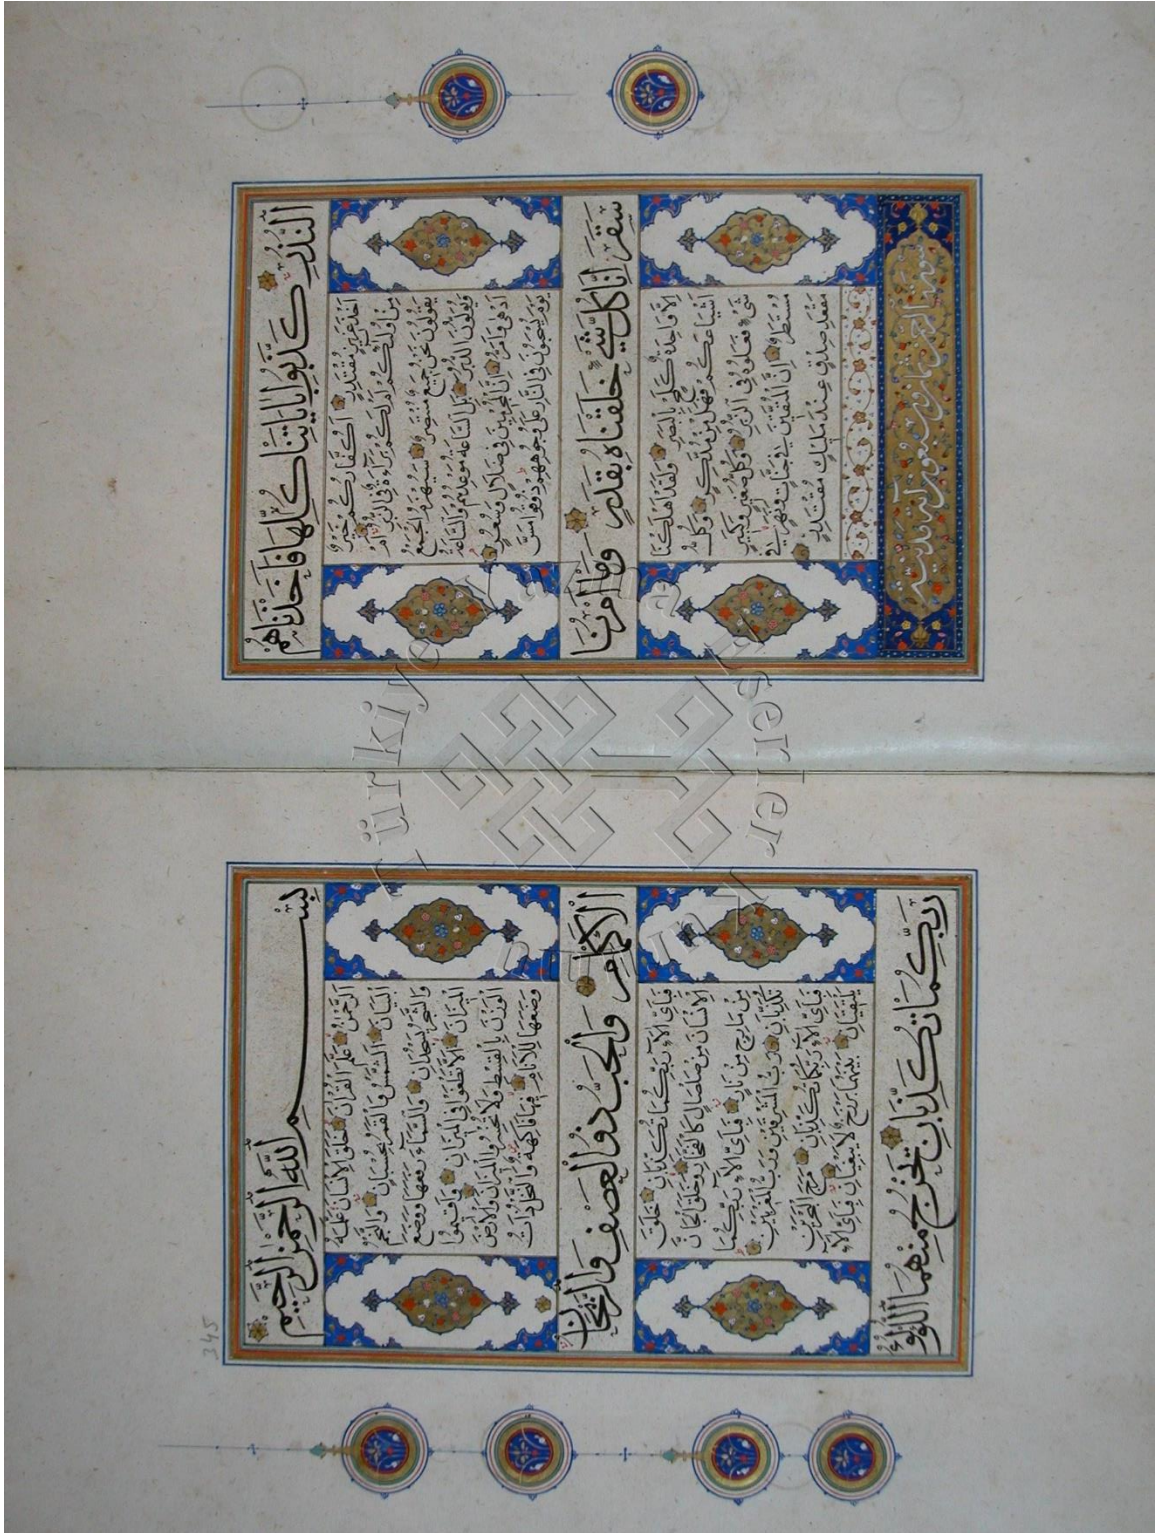 النُّذُرُ كَذَّبُوا بِآيَاتِنَا كُلِّهَا فَأَخَذْنَاهُمْ
أَخْذَ عَزِيزٍ مُقْتَدِرٍ أَكُفَّارُكُمْ خَيْرٌ
مِنْ أُولَئِكُمْ أَمْ لَكُمْ بَرَاءَةٌ فِي الزُّبُرِ أَمْ
يَقُولُونَ نَحْنُ جَمِيعٌ مُنْتَصِرٌ سَيُهْزَمُ الْجَمْعُ
وَيُوَلُّونَ الدُّبُرَ بَلِ السَّاعَةُ مَوْعِدُهُمْ وَالسَّاعَةُ
أَدْهَى وَأَمَرُّ إِنَّ الْمُجْرِمِينَ فِي ضَلَالٍ وَسُعُرٍ
يَوْمَ يُسْحَبُونَ فِي النَّارِ عَلَى وُجُوهِهِمْ ذُوقُوا مَسَّ
سَقَرَ إِنَّا كُلَّ شَيْءٍ خَلَقْنَاهُ بِقَدَرٍ وَمَا أَمْرُنَا
إِلَّا وَاحِدَةٌ كَلَمْحٍ بِالْبَصَرِ وَلَقَدْ أَهْلَكْنَا
أَشْيَاعَكُمْ فَهَلْ مِنْ مُدَّكِرٍ وَكُلُّ
شَيْءٍ فَعَلُوهُ فِي الزُّبُرِ وَكُلُّ صَغِيرٍ وَكَبِيرٍ
مُسْتَطَرٌ إِنَّ الْمُتَّقِينَ فِي جَنَّاتٍ وَنَهَرٍ فِي
مَقْعَدِ صِدْقٍ عِنْدَ مَلِيكٍ مُقْتَدِرٍ
سورة الرحمن ثمان وسبعون آية مدنية
بِسْمِ اللَّهِ الرَّحْمَنِ الرَّحِيمِ
الرَّحْمَنُ عَلَّمَ الْقُرْآنَ خَلَقَ الْإِنْسَانَ عَلَّمَهُ
الْبَيَانَ الشَّمْسُ وَالْقَمَرُ بِحُسْبَانٍ وَالنَّجْمُ
وَالشَّجَرُ يَسْجُدَانِ وَالسَّمَاءَ رَفَعَهَا وَوَضَعَ
الْمِيزَانَ أَلَّا تَطْغَوْا فِي الْمِيزَانِ وَأَقِيمُوا
الْوَزْنَ بِالْقِسْطِ وَلَا تُخْسِرُوا الْمِيزَانَ وَالْأَرْضَ
وَضَعَهَا لِلْأَنَامِ فِيهَا فَاكِهَةٌ وَالنَّخْلُ ذَاتُ
الْأَكْمَامِ وَالْحَبُّ ذُو الْعَصْفِ وَالرَّيْحَانُ
فَبِأَيِّ آلَاءِ رَبِّكُمَا تُكَذِّبَانِ خَلَقَ
الْإِنْسَانَ مِنْ صَلْصَالٍ كَالْفَخَّارِ وَخَلَقَ الْجَانَّ
مِنْ مَارِجٍ مِنْ نَارٍ فَبِأَيِّ آلَاءِ رَبِّكُمَا
تُكَذِّبَانِ رَبُّ الْمَشْرِقَيْنِ وَرَبُّ الْمَغْرِبَيْنِ
فَبِأَيِّ آلَاءِ رَبِّكُمَا تُكَذِّبَانِ مَرَجَ الْبَحْرَيْنِ
يَلْتَقِيَانِ بَيْنَهُمَا بَرْزَخٌ لَا يَبْغِيَانِ فَبِأَيِّ آلَاءِ
رَبِّكُمَا تُكَذِّبَانِ يَخْرُجُ مِنْهُمَا اللُّؤْلُؤُ
345
Türkiye Yazma Eserler Kurumu